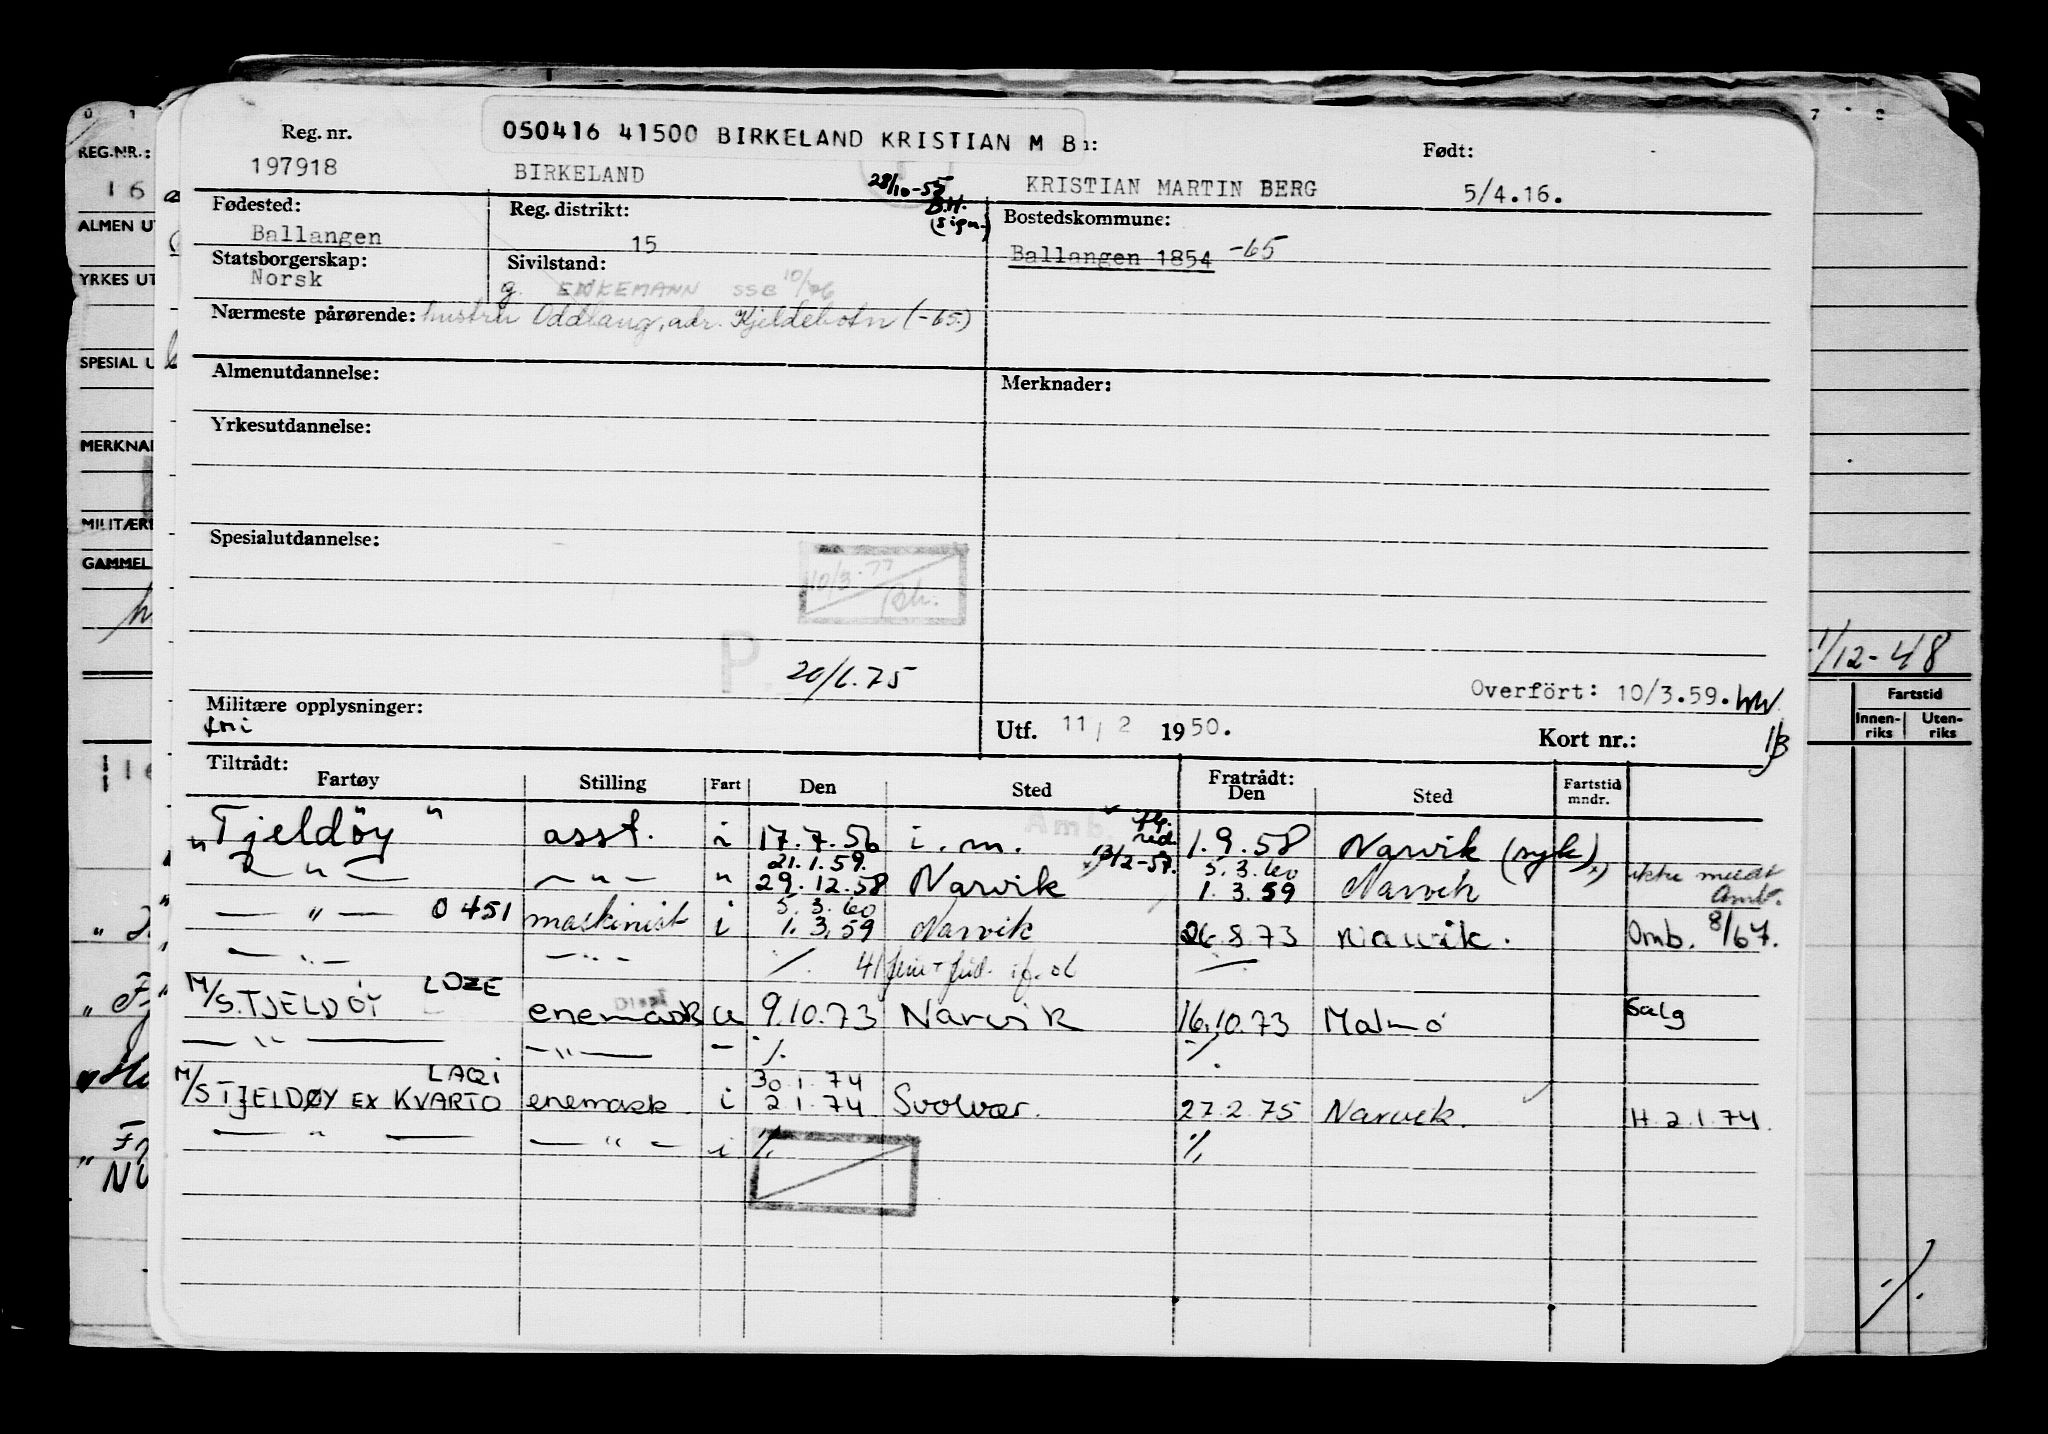 050416 41500 BIRKELAND KRISTIAN M B
Reg. nr. Født:
197918 BIRKELAND KRISTIAN MARTIN BERG 5/4.16.
28/10-55 B.H. (sign.)
Fødested: Reg. distrikt: Bostedskommune:
Ballangen 15 Ballangen 1854 -65
Statsborgerskap: Sivilstand:
Norsk g. ENKEMANN SSB 10/76
Nærmeste pårørende: hustru Oddlaug, adr. Kjeldebotn (-65.)
Almenutdannelse: Merknader:
Yrkesutdannelse:
Spesialutdannelse:
10/3.77
P.
20/6.75
Overfört: 10/3.59.
Militære opplysninger: Utf. 11/2 1950. Kort nr.:
fri
Tiltrådt: Fratrådt:
Fartøy Stilling Fart Den Sted Den Sted Fartstid mndr.
"Tjeldöy" asst. i 17.7.56 i.m. 1.9.58 Narvik (syk)
13/2-57.
21.1.59. 5.3.60
— " — — " — " 29.12.58 Narvik 1.3.59 Narvik ikke
Amb.
5.3.60
— " — 0451 maskinist i 1.3.59 Narvik 26.8.73 Narvik. Omb. 8/67.
— " — — " — ⁒
LDZE
M/S. TJELDÖY enemask u 9.10.73 Narvik 16.10.73 Malmö Salg
— " — — " — - ⁒ ⁒
LAQI 30.1.74
M/S TJELDØY EX KVARTO enemask. i 2.1.74 Svolvær. 27.2.75 Narvik. H. 2.1.74.
— " — — " — i ⁒ ⁒
REG.NR.:
16
ALMEN UT
YRKES UT
SPESIAL U
MERKNA
MILITÆRE
GAMMEL
1/12-48
Fartstid
Innen-riks Uten-riks
⁒